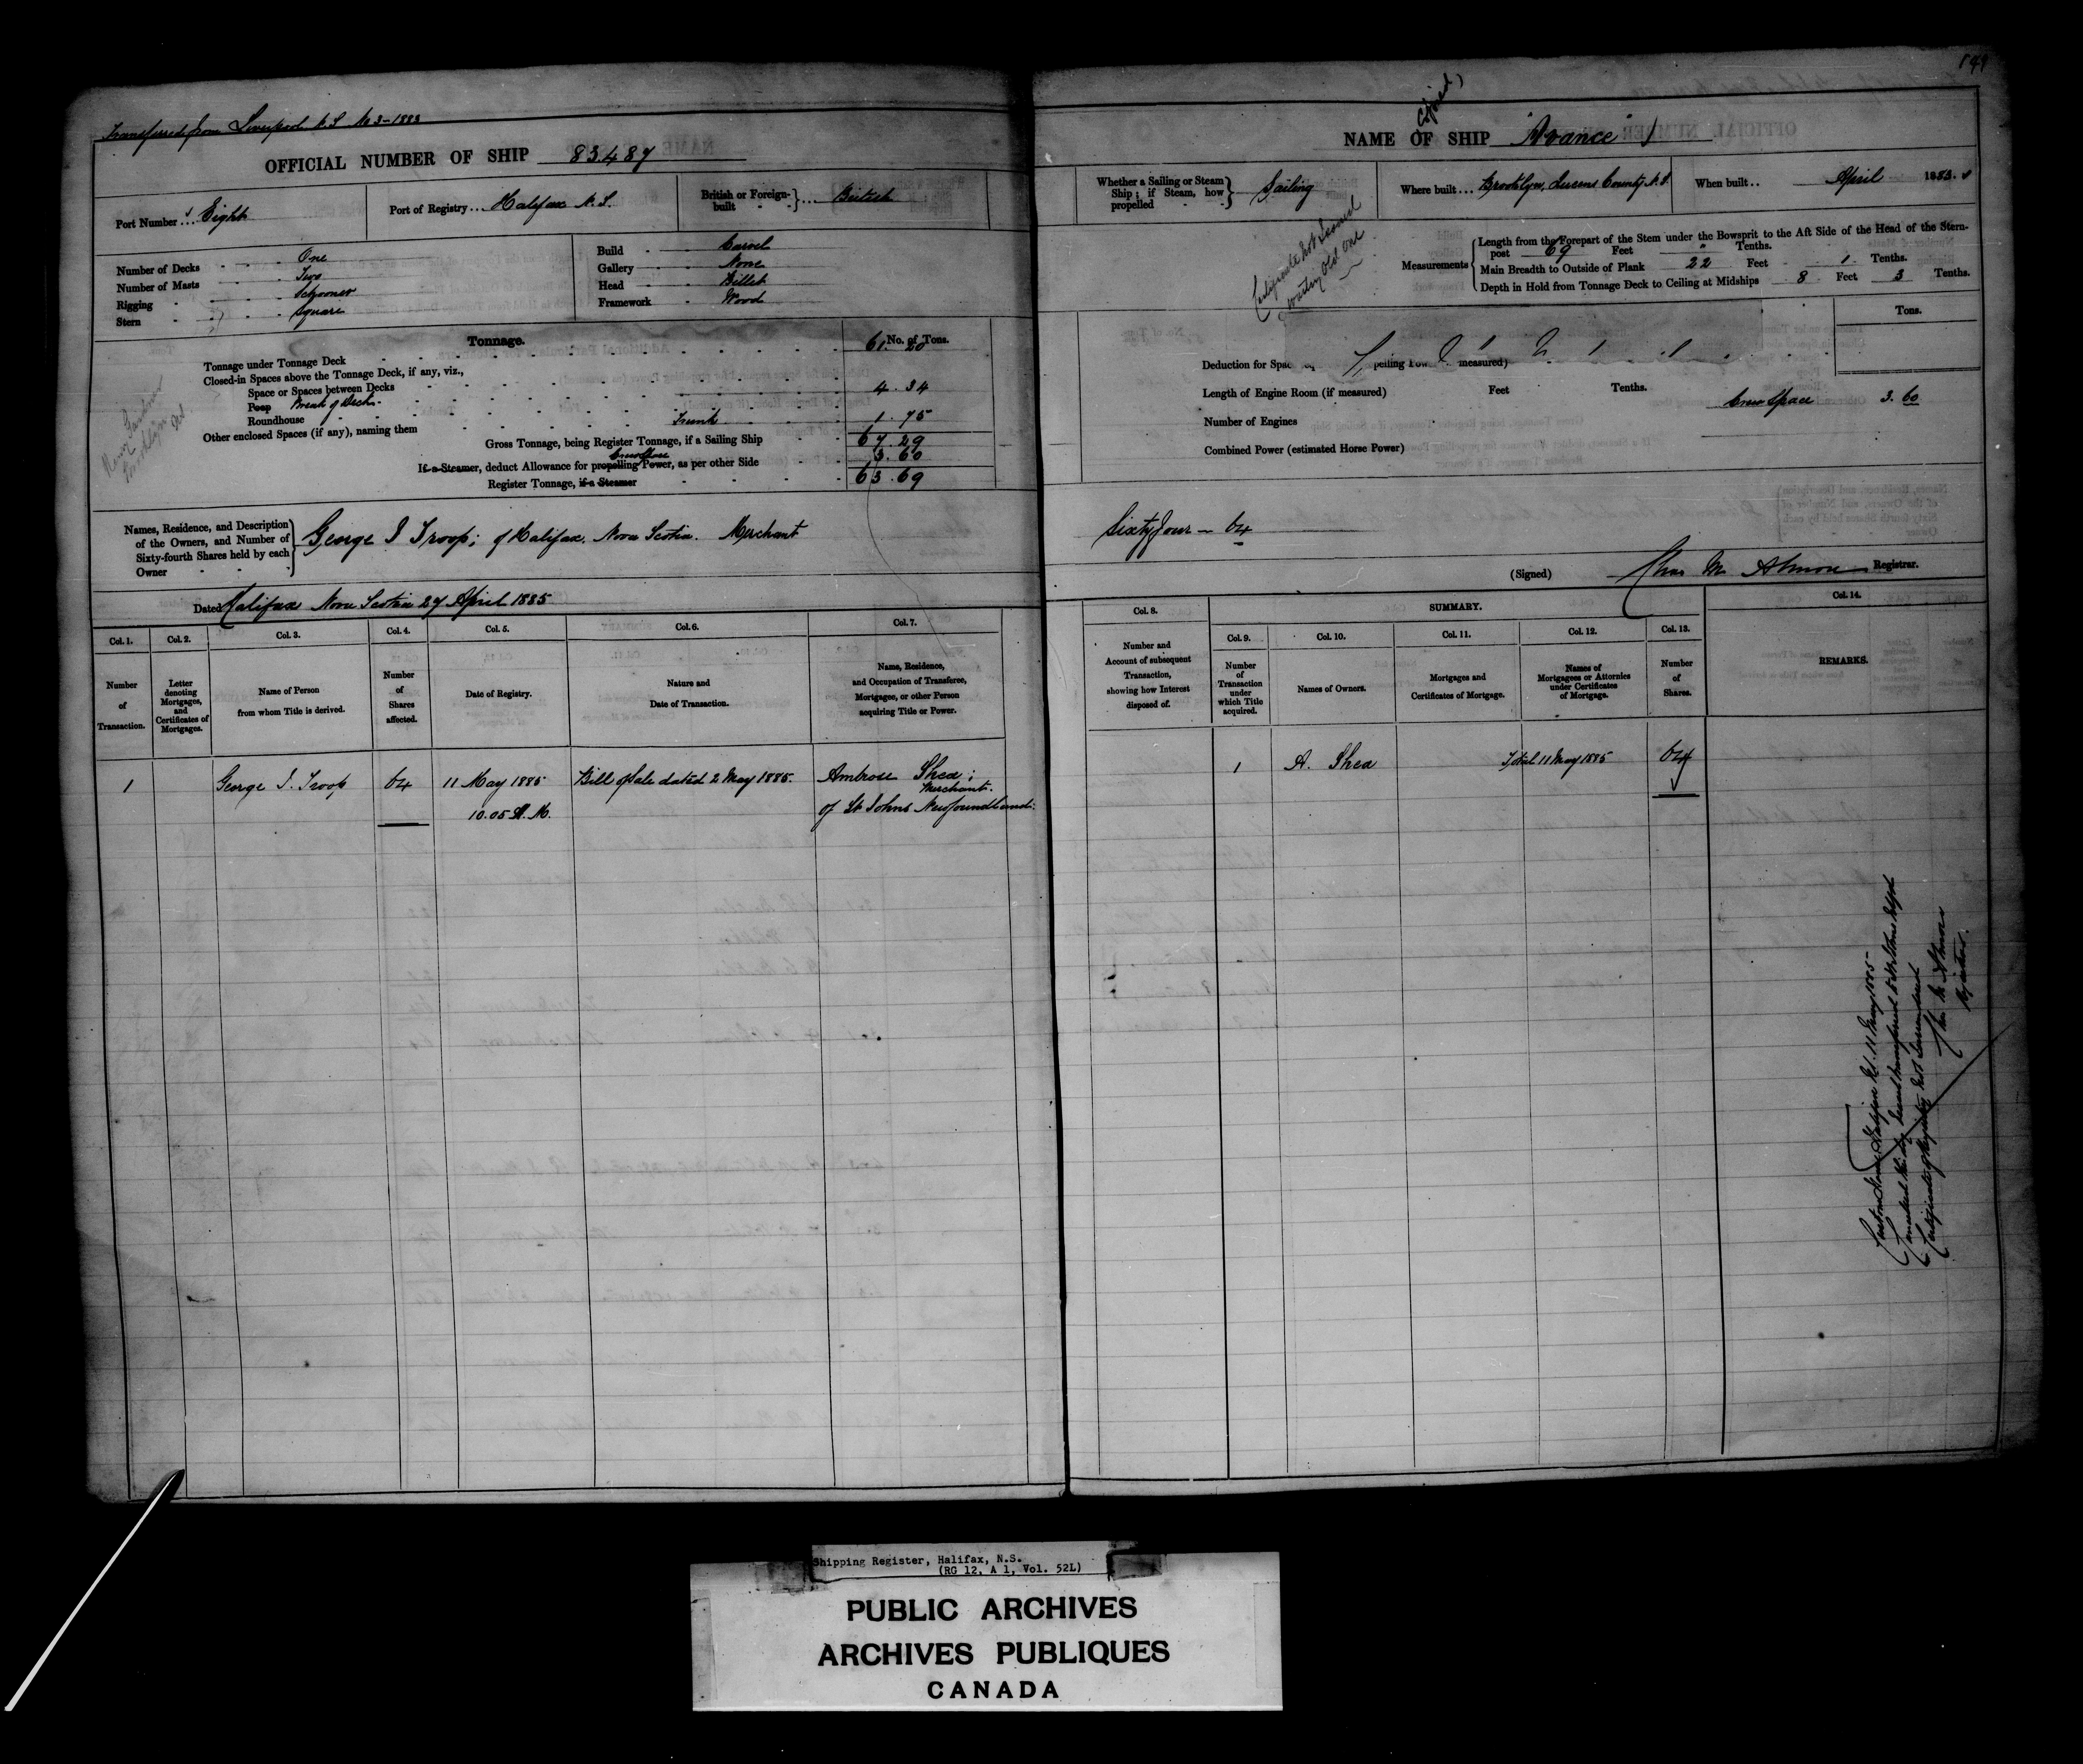 Transferred from Liverpool N.S. No 3-1883
OFFICIAL NUMBER OF SHIP 83487
Port Number Eight
Port of Registry Halifax N.S.
British or Foreign-built British
Number of Decks One
Number of Masts Two
Rigging Schooner
Stern Square
Build Carvel
Gallery None
Head Billet
Framework Wood
Tonnage.
No. of Tons.
Tonnage under Tonnage Deck 61.20
Closed-in Spaces above the Tonnage Deck, if any, viz.,
Space or Spaces between Decks
Poop Break of Deck 4.34
Roundhouse
Other enclosed Spaces (if any), naming them Trunk 1.75
Gross Tonnage, being Register Tonnage, if a Sailing Ship 67.29
If a Steamer, deduct Allowance for propelling Power, as per other Side 3.60
Register Tonnage, if a Steamer 63.69
Names, Residence, and Description of the Owners, and Number of Sixty-fourth Shares held by each Owner
George J Troop; of Halifax, Nova Scotia. Merchant
Dated Halifax Nova Scotia 27 April 1885
Col. 1. Col. 2. Col. 3. Col. 4. Col. 5. Col. 6. Col. 7.
Number of Transaction.
Letter denoting Mortgages, and Certificates of Mortgages.
Name of Person from whom Title is derived.
Number of Shares affected.
Date of Registry.
Nature and Date of Transaction.
Name, Residence, and Occupation of Transferee, Mortgagee, or other Person acquiring Title or Power.
1 George J. Troop 64 11 May 1885 Bill of Sale dated 2 May 1885. Ambrose Shea;
Merchant.
10.05 A.M. of St Johns Newfoundland:
149
(Copied)
NAME OF SHIP "Avance"
Whether a Sailing or Steam Ship; if Steam, how propelled Sailing
Where built Brooklyn, Queens County, N.S.
When built April 1883.
Certificate not issued
waiting old one
Measurements
Length from the Forepart of the Stem under the Bowsprit to the Aft Side of the Head of the Stern-post 69 Feet " Tenths.
Main Breadth to Outside of Plank 22 Feet 1 Tenths.
Depth in Hold from Tonnage Deck to Ceiling at Midships 8 Feet 3 Tenths.
Tons.
Deduction for measured)
Length of Engine Room (if measured) Feet Tenths.
Crew Space 3.60
Number of Engines
Combined Power (estimated Horse Power)
Sixty four - 64
(Signed) Chas M Almon Registrar.
Col. 8. SUMMARY. Col. 14.
Col. 9. Col. 10. Col. 11. Col. 12. Col. 13.
Number and Account of subsequent Transaction, showing how Interest disposed of.
Number of Transaction under which Title acquired.
Names of Owners.
Mortgages and Certificates of Mortgage.
Names of Mortgagees or Attornies under Certificates of Mortgage.
Number of Shares.
REMARKS.
1 A. Shea Total 11 May 1885 64
Custom House Halifax N.S. 11 May 1885-
Certificate of Registry not Surrendered
Chas M Almon
Registrar.
Shipping Register, Halifax, N.S.
(RG 12, A 1, Vol. 52L)
PUBLIC ARCHIVES
ARCHIVES PUBLIQUES
CANADA